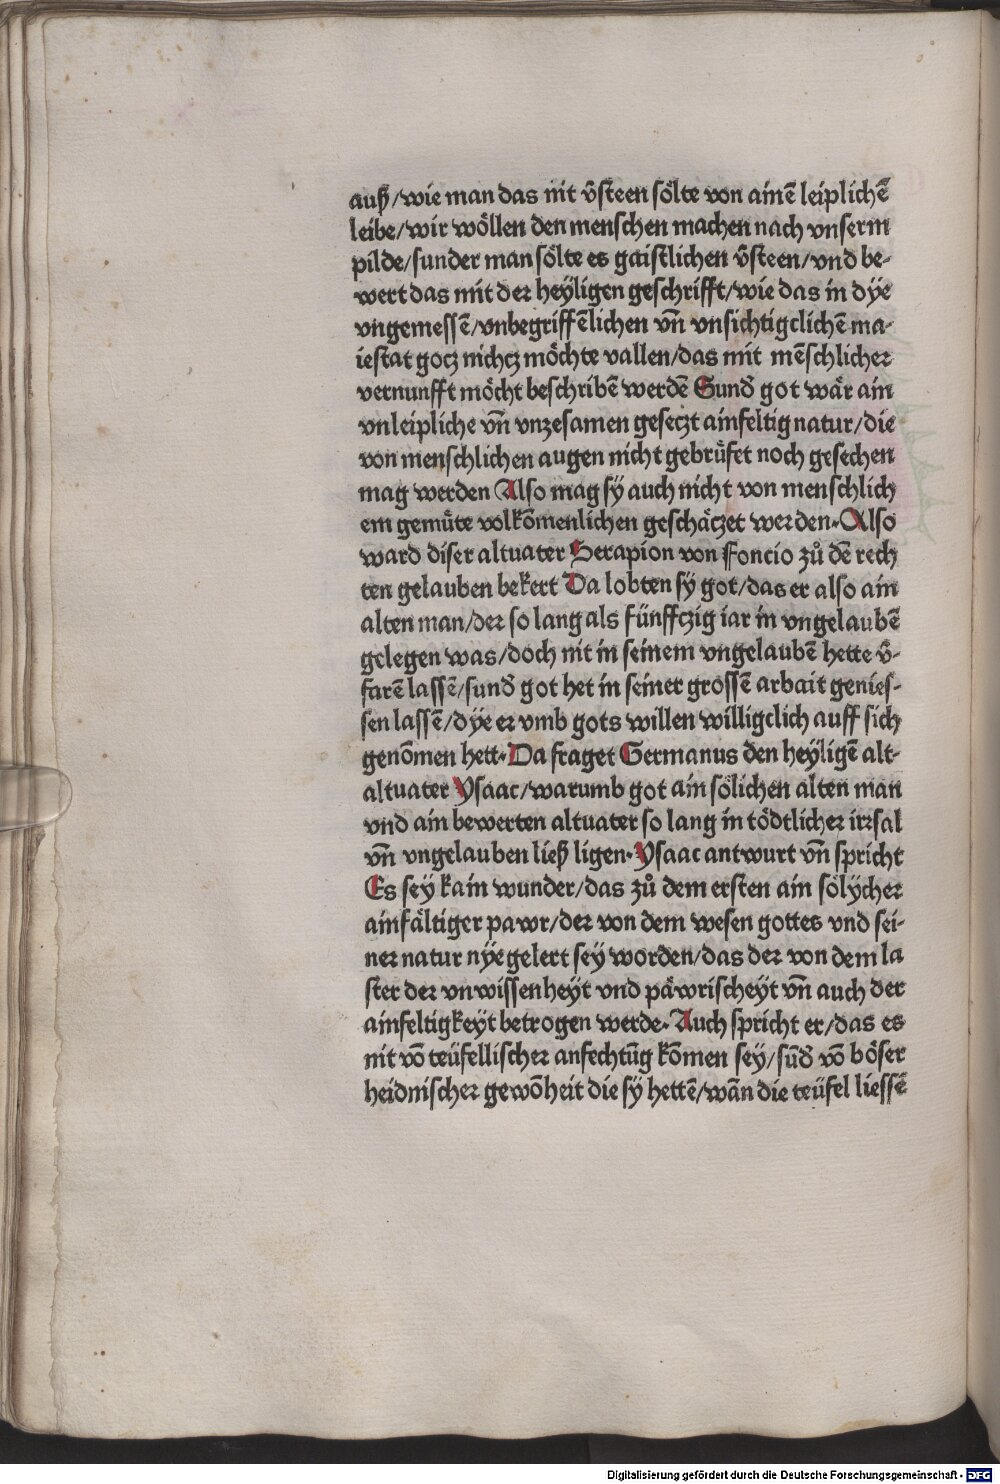 auß/wie man das nit v̄steen sölte von ainē leiplichē
leibe/wir wöllen den menschen machen nach vnserm
pilde/sunder man sölte es gaistlichen v̄steen/vnd be-
wert das mit der heyligen geschrifft/wie das in dÿe
vngemessē/vnbegriffēlichen vn̄ vnsichtigclichē ma-
iestat gocz nichcz möchte vallen/das mit mēschlicher
vernunfft möcht beschribē werdē Sund̄ got wär ain
vnleipliche vn̄ vnzesamen geseczt ainfeltig natur/die
von menschlichen augen nicht gebrüfet noch gesechen
mag werden Also mag sÿ auch nicht von menschlich
em gemüte volkōmenlichen geschäczet werden. Also
ward diser altuater Serapion von Foncio zů dē rech
ten gelauben bekert Da lobten sÿ got/das er also ain
alten man/der so lang als fünffczig iar in vngelaubē
gelegen was/doch nit in seinem vngelaubē hette v̄-
farē lassē/sund̄ got het in seiner grossē arbait genies-
sen lassē/dÿe er vmb gots willen willigclich auff sich
genōmen hett. Da fraget Germanus den heyligē alt-
altuater Ysaac/warumb got ain sölichen alten man
vnd ain bewerten altuater so lang in tödtlicher irrsal
vn̄ vngelauben ließ ligen. Ysaac antwurt vn̄ spricht
Es seÿ kain wunder/das zů dem ersten ain sölÿcher
ainfältiger pawr/der von dem wesen gottes vnd sei-
ner natur nÿe gelert seÿ worden/das der von dem la
ster der vnwissenheÿt vnd päwrischeÿt vn̄ auch der
ainfeltigkeÿt betrogen werde. Auch spricht er/das es
nit vō teüfellischer anfechtūg kōmen seÿ/sūd̄ vō böser
heidnischer gewōheit die sÿ hettē/wān die teüfel liessē
Digitalisierung gefördert durch die Deutsche Forschungsgemeinschaft - DFG